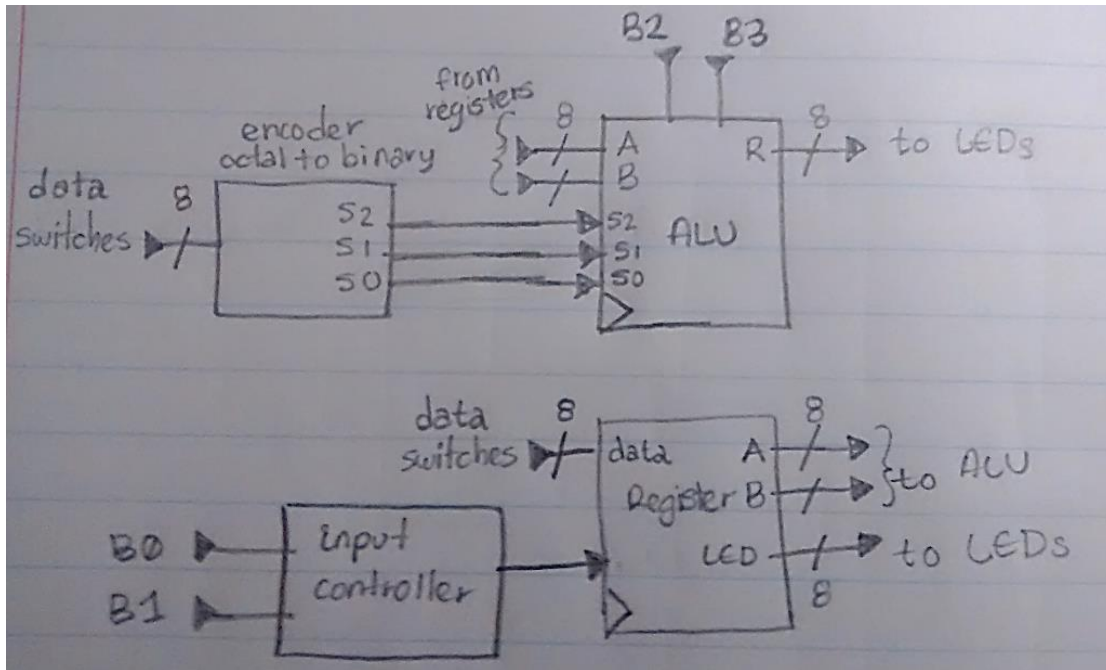 B2 B3
from
registers
8
A
B
R
8
to LEDs
encoder
octal to binary
data
switches
8
S2
S1
S0
S2
S1
S0
ALU
data
switches
8
data
Register
A
B
LED
8
to ALU
to LEDs
8
B0
B1
input
controller